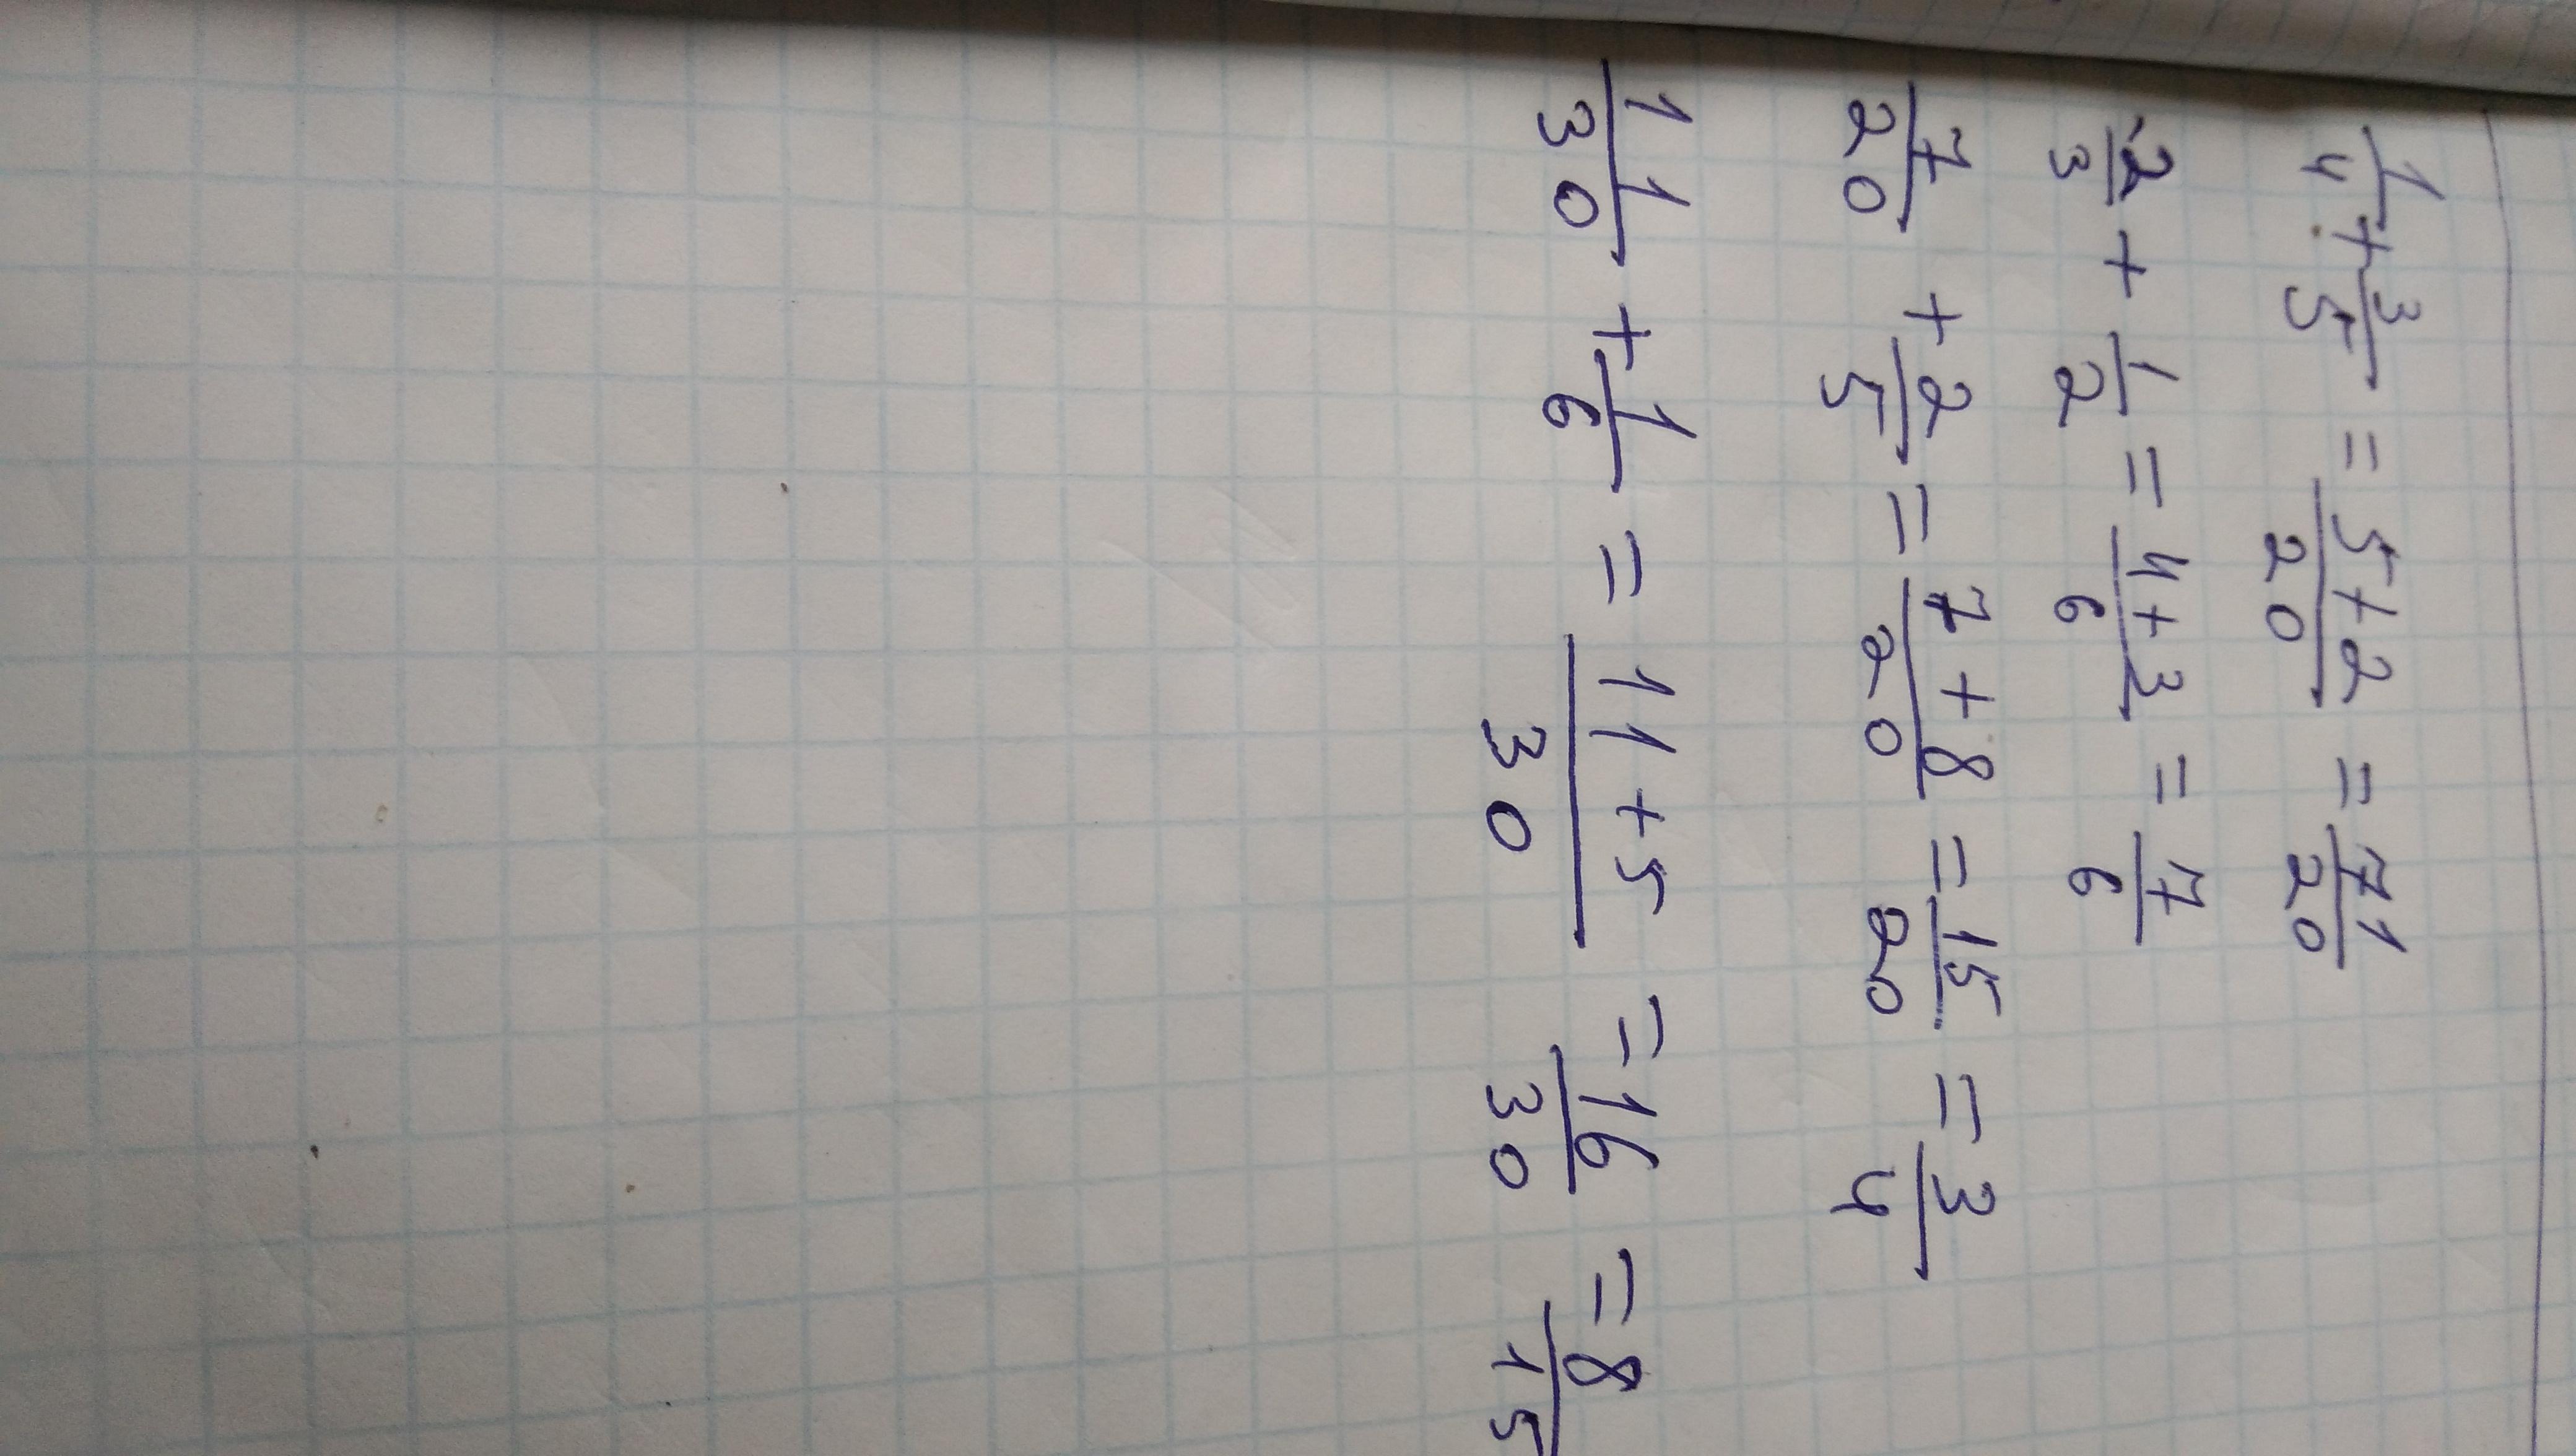 1/4 + 3/5 = 5+2/20 = 71/20
2/3 + 1/2 = 4+3/6 = 7/6
7/20 + 2/5 = 7+8/20 = 15/20 = 3/4
11/30 + 1/6 = 11+5/30 = 16/30 = 8/15